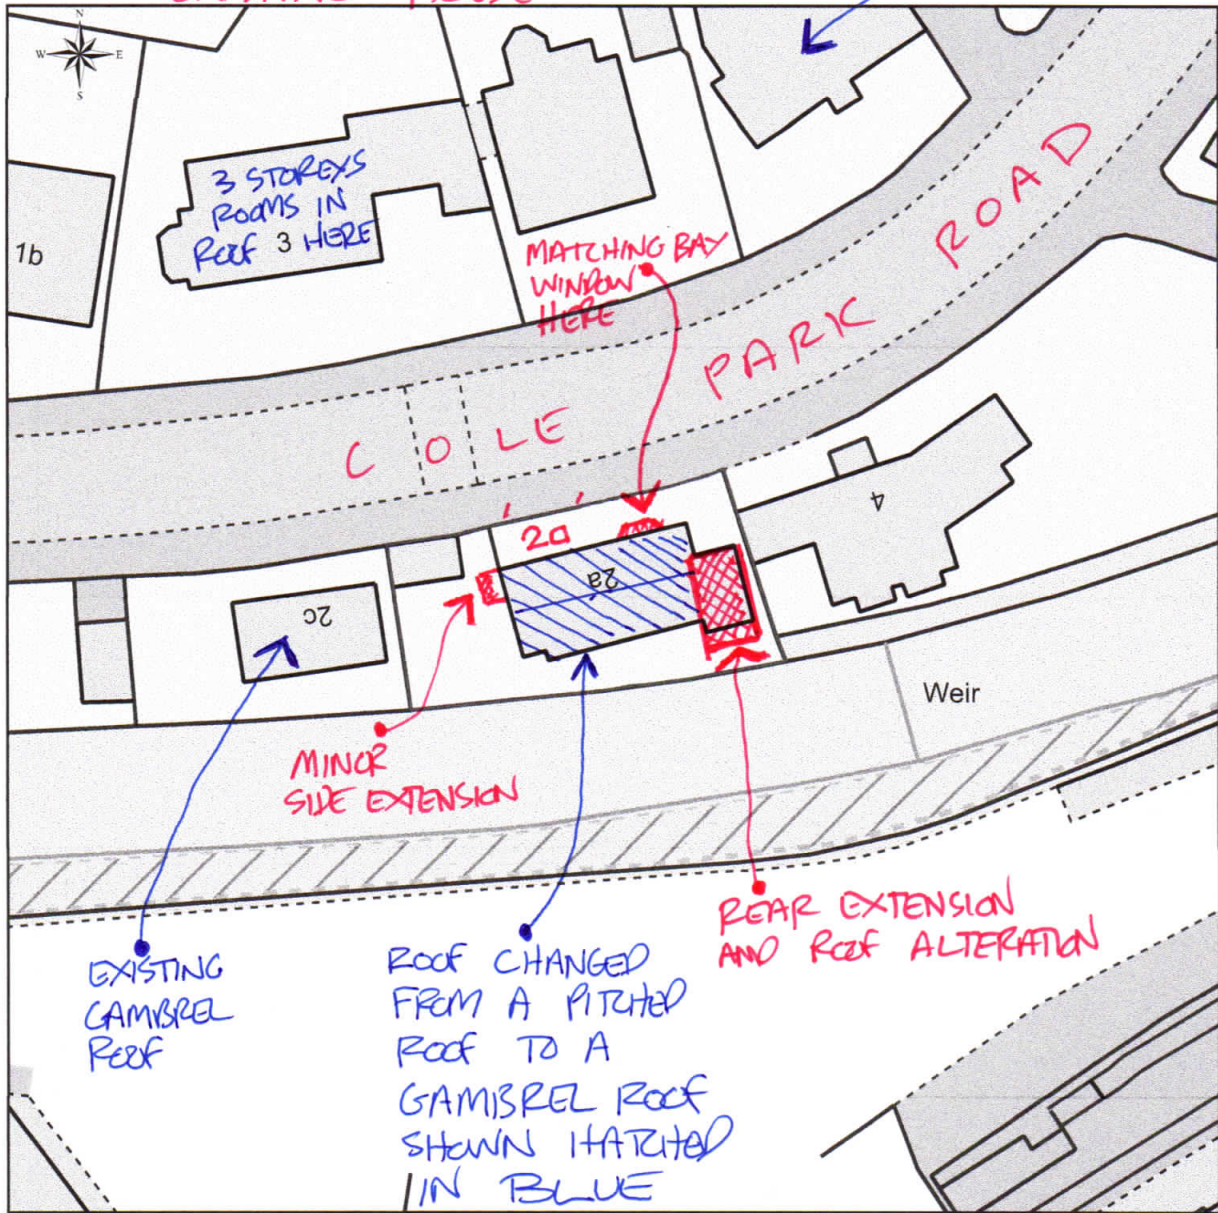 N
W E
S
3 STOREYS
ROOMS IN
ROOF 3 HERE
1b
MATCHING BAY
WINDOW
HERE
COLE PARK ROAD
4
2a
2a
2c
Weir
MINOR
SIDE EXTENSION
REAR EXTENSION
AND ROOF ALTERATION
EXISTING
GAMBREL
ROOF
ROOF CHANGED
FROM A PITCHED
ROOF TO A
GAMBREL ROOF
SHOWN HATCHED
IN BLUE